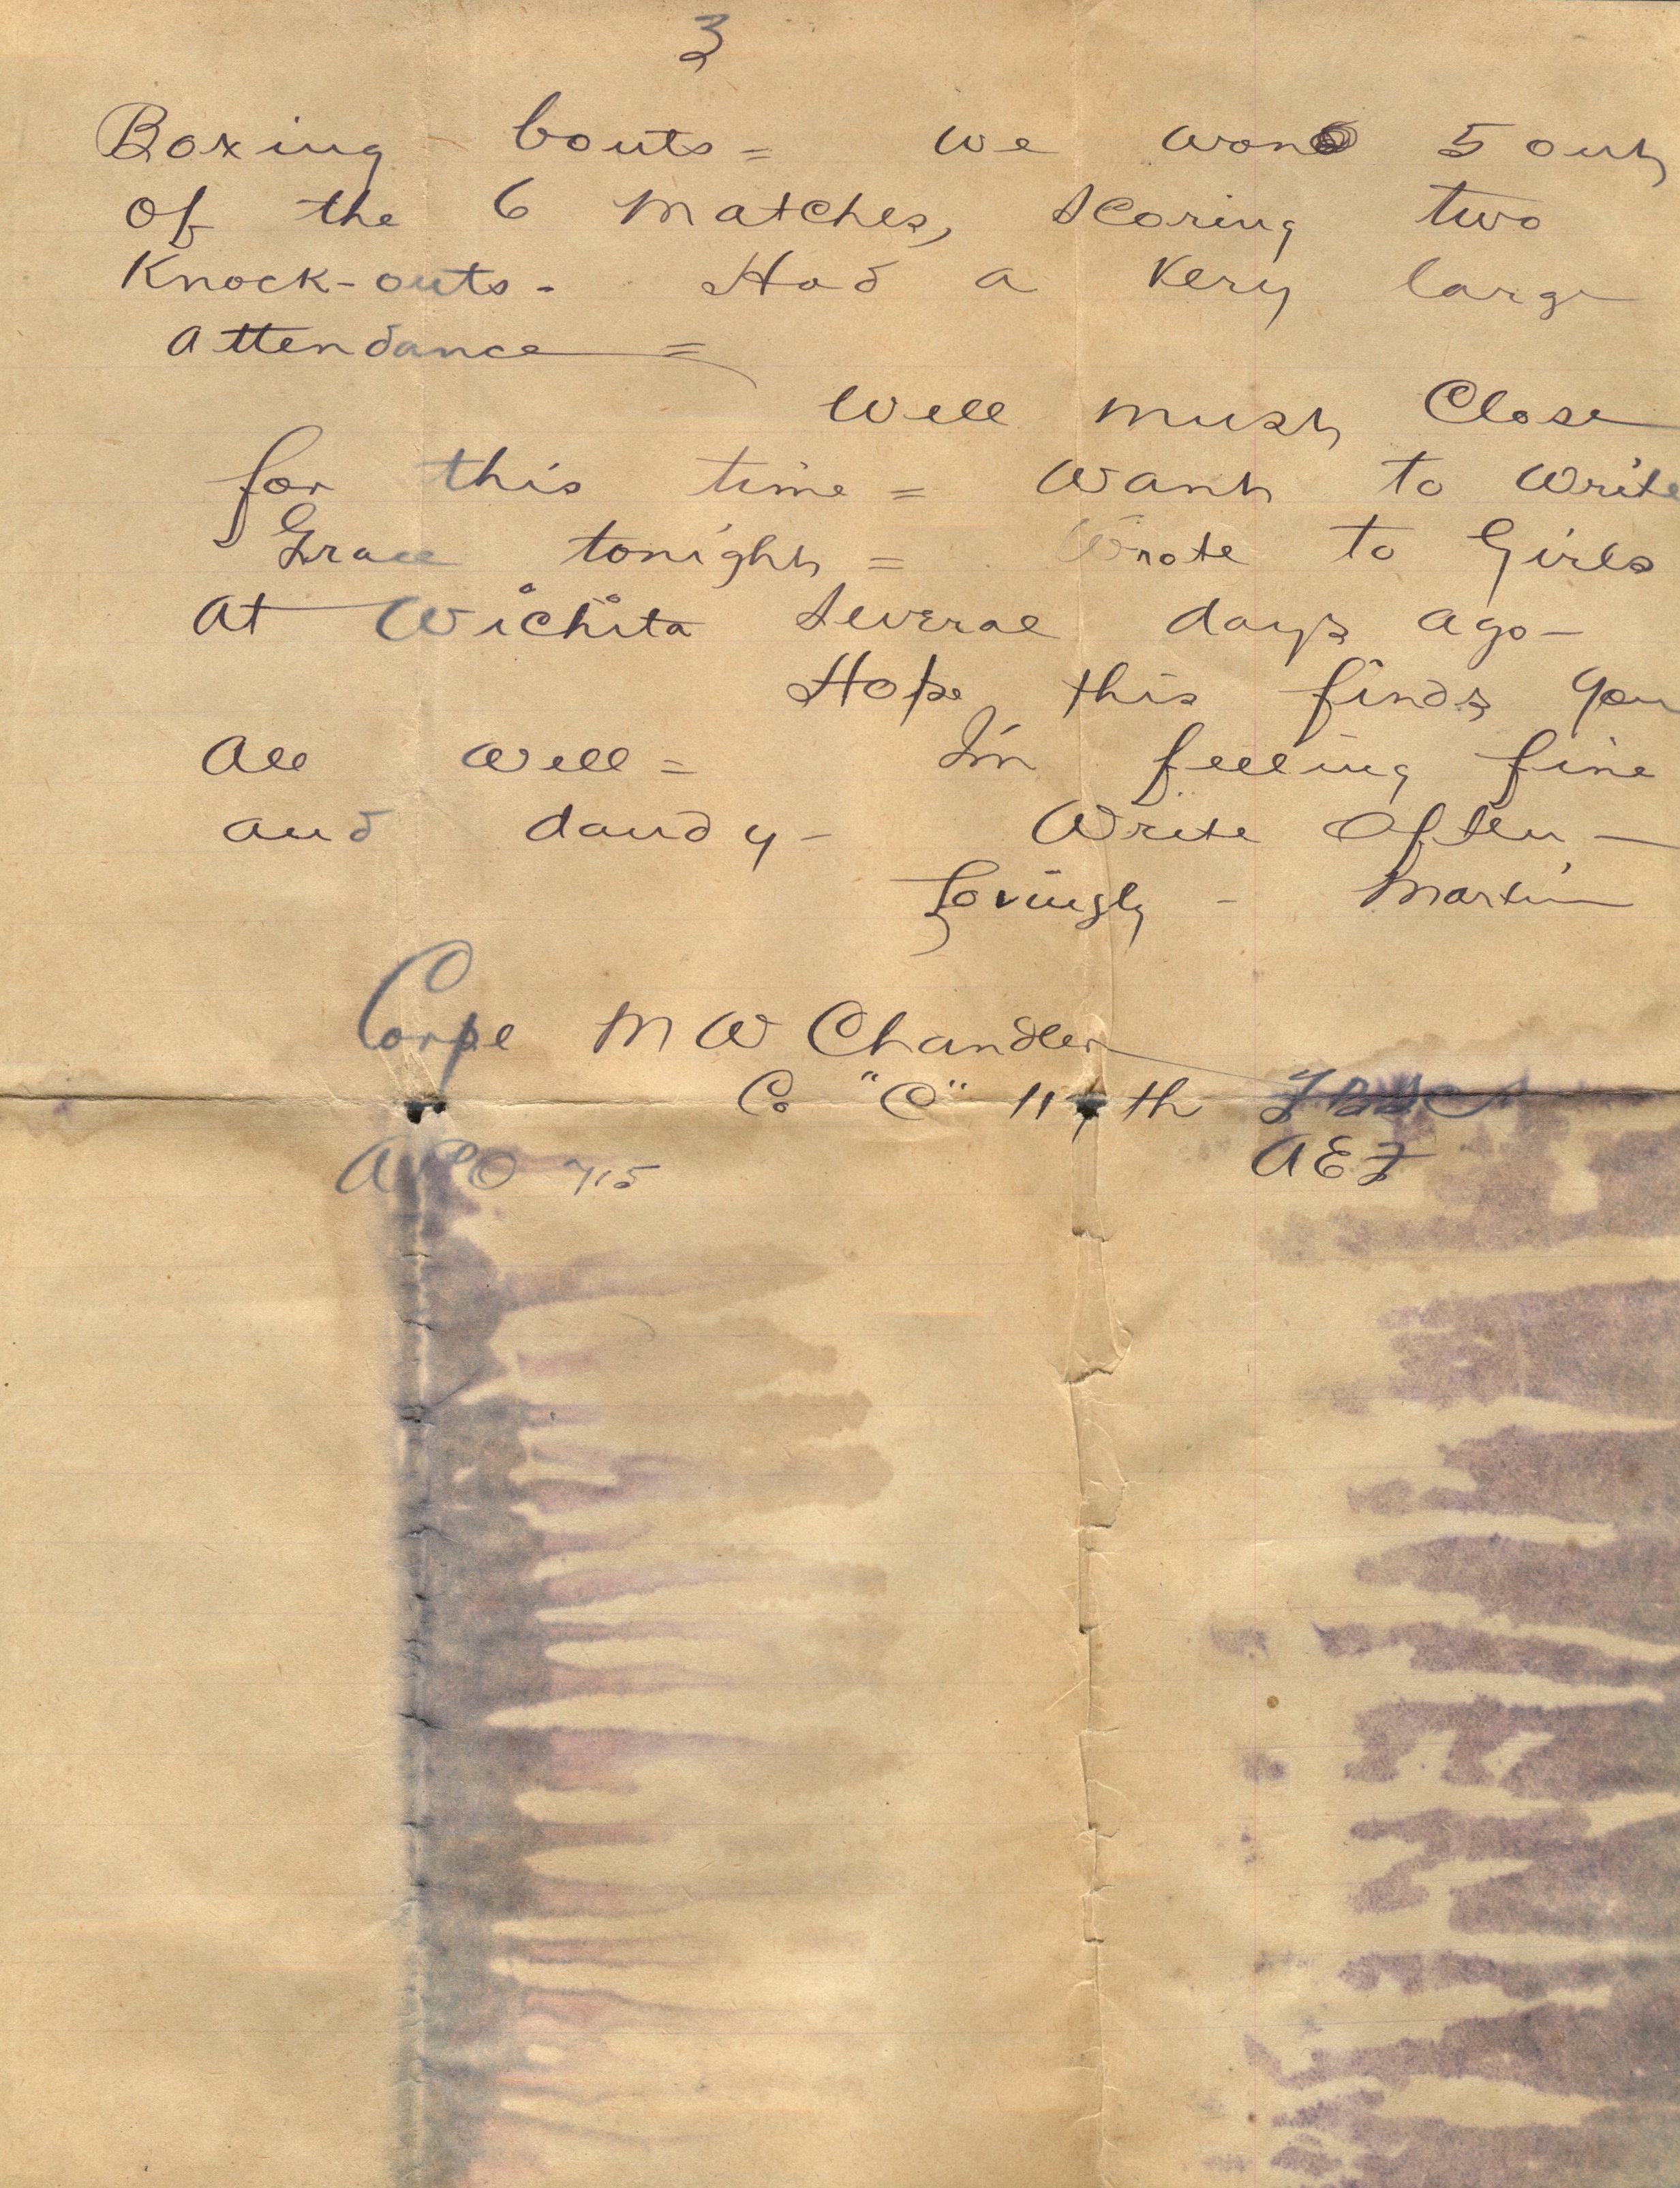 3
Boxing bouts = We won 5 out
of the 6 matches, scoring two
Knock-outs - Had a very large
attendance =
Well must close
for this time = Want to write
Grace tonight = Wrote to Girls
at Wichita several days ago -
Hope this finds you
all well = I'm feeling fine
and dandy - Write often -
Lovingly - Martin
Corpl M W Chandler
Co "C" 11 th
APO 715 AEF